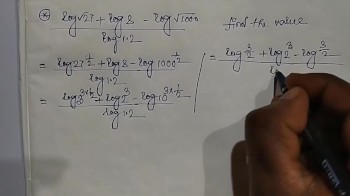 ⊗ log√27 + log 8 - log√1000 / log 1.2
Find the value
= log 27^{1/2} + log 8 - log 1000^{1/2} / log 1.2
= log 3^{3×1/2} + log 2^3 - log 10^{3×1/2} / log 1.2
= log^{3/2} + log 2^3 - log^{3/2}